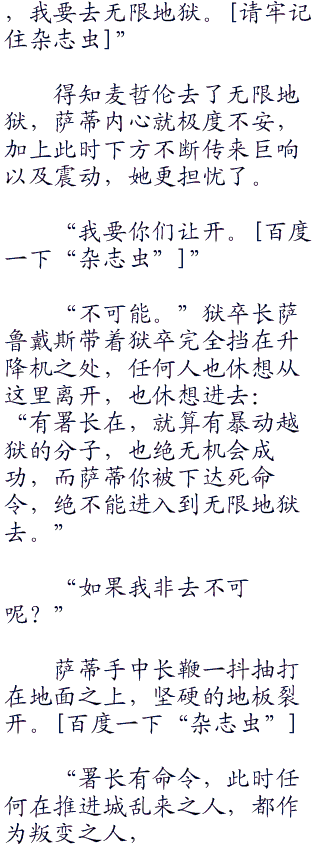 ，我要去无限地狱。[请牢记
住杂志虫]”
得知麦哲伦去了无限地
狱，萨蒂内心就极度不安，
加上此时下方不断传来巨响
以及震动，她更担忧了。
“我要你们让开。[百度
一下“杂志虫”]”
“不可能。”狱卒长萨
鲁戴斯带着狱卒完全挡在升
降机之处，任何人也休想从
这里离开，也休想进去：
“有署长在，就算有暴动越
狱的分子，也绝无机会成
功，而萨蒂你被下达死命
令，绝不能进入到无限地狱
去。”
“如果我非去不可
呢？”
萨蒂手中长鞭一抖抽打
在地面之上，坚硬的地板裂
开。[百度一下“杂志虫”]
“署长有命令，此时任
何在推进城乱来之人，都作
为叛变之人，